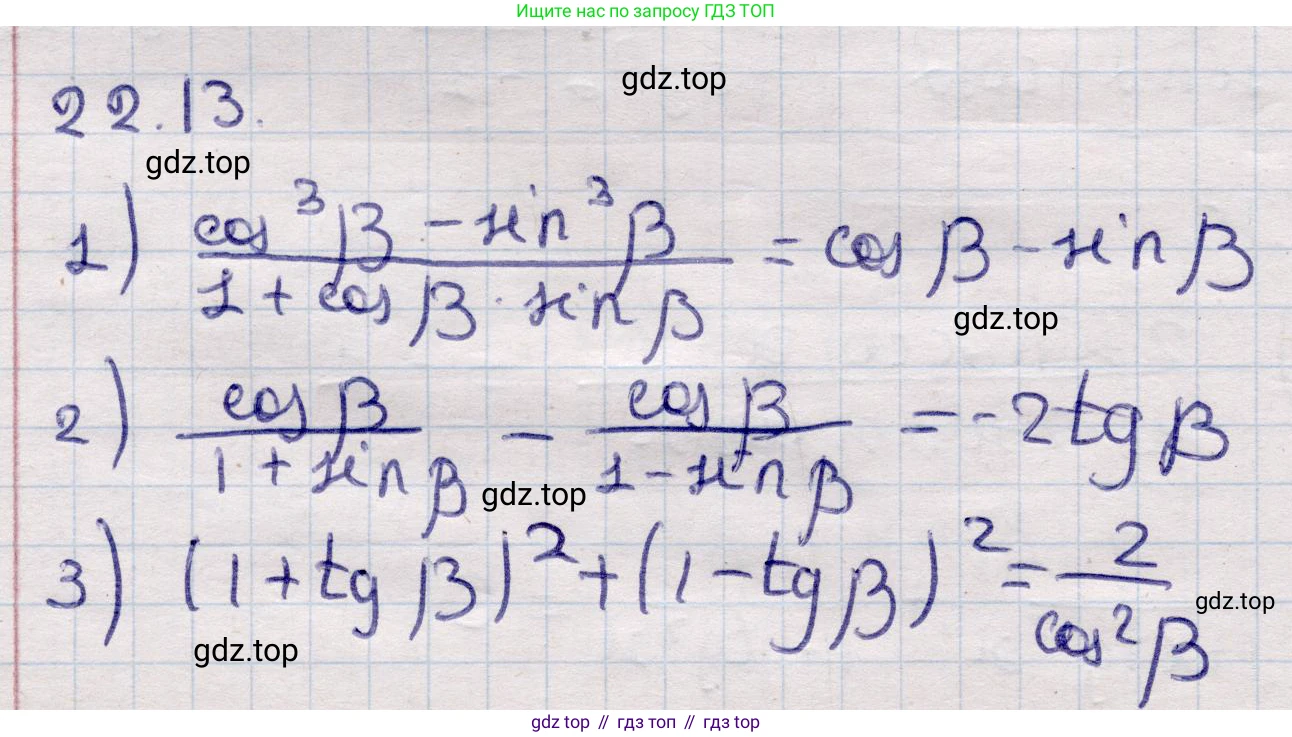 Ищите нас по запросу ГДЗ ТОП
22.13.
gdz.top
gdz.top
1) (cos³β - sin³β)/(1 + cosβ · sinβ) = cosβ - sinβ
gdz.top
2) cosβ/(1 + sinβ) - cosβ/(1 - sinβ) = -2tgβ
gdz.top
3) (1 + tgβ)² + (1 - tgβ)² = 2/cos²β
gdz.top
gdz.top
gdz top // гдз топ // гдз top